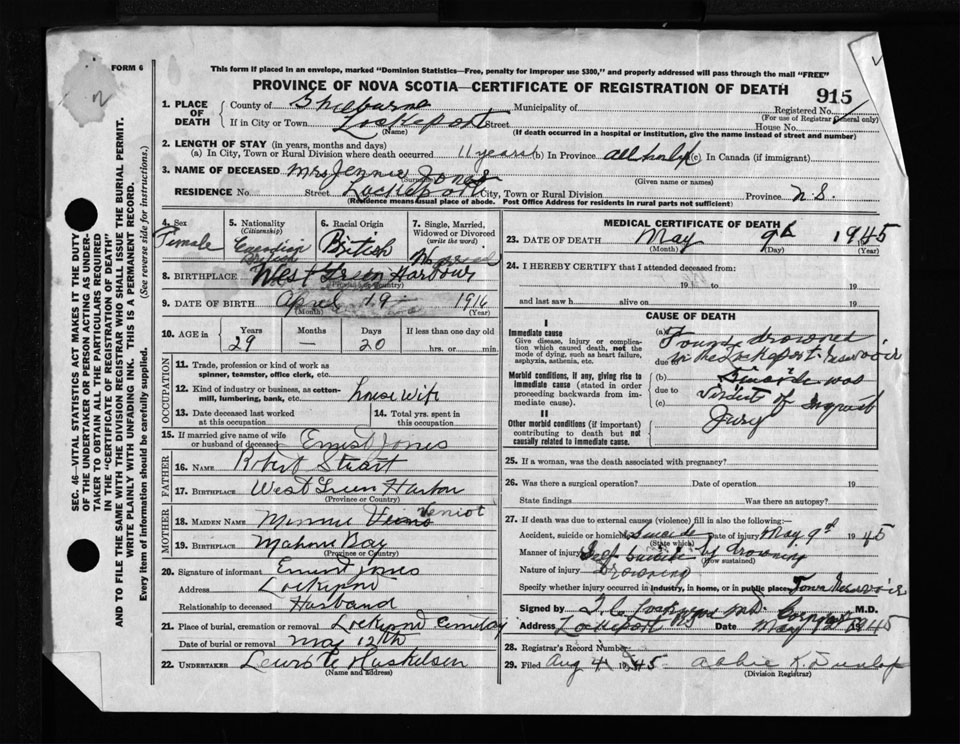 FORM 6
This form if placed in an envelope, marked "Dominion Statistics—Free, penalty for improper use $300," and properly addressed will pass through the mail "FREE"
PROVINCE OF NOVA SCOTIA—CERTIFICATE OF REGISTRATION OF DEATH
915
1. PLACE OF DEATH
County of Shelburne Municipality of Registered No.
(For use of Registrar General only)
If in City or Town Lockeport Street House No.
(Name) (If death occurred in a hospital or institution, give the name instead of street and number)
2. LENGTH OF STAY (in years, months and days)
(a) In City, Town or Rural Division where death occurred 11 years (b) In Province all her life (c) In Canada (if immigrant)
3. NAME OF DECEASED Mrs Jennie Jones
(Surname) (Given name or names)
RESIDENCE No. Street Lockeport City, Town or Rural Division Province N.S.
(Residence means usual place of abode. Post Office Address for residents in rural parts not sufficient)
4. Sex Female
5. Nationality (Citizenship) Canadian British
6. Racial Origin British
7. Single, Married, Widowed or Divorced (write the word) Married
8. BIRTHPLACE West Green Harbour
(Province or Country)
9. DATE OF BIRTH April 19 1916
(Month) (Year)
10. AGE in Years 29 Months — Days 20 If less than one day old hrs. or min.
OCCUPATION
11. Trade, profession or kind of work as spinner, teamster, office clerk, etc.
12. Kind of industry or business, as cotton-mill, lumbering, bank, etc. house wife
13. Date deceased last worked at this occupation
14. Total yrs. spent in this occupation
15. If married give name of wife or husband of deceased Ernest Jones
FATHER
16. NAME Robert Stuart
17. BIRTHPLACE West Green Harbor
(Province or Country)
MOTHER
18. MAIDEN NAME Minnie Veniot
19. BIRTHPLACE Mahone Bay
(Province or Country)
20. Signature of informant Ernest Jones
Address Lockeport
Relationship to deceased Husband
21. Place of burial, cremation or removal Lockeport Cemetery
Date of burial or removal May 12th
22. UNDERTAKER
(Name and address)
MEDICAL CERTIFICATE OF DEATH
23. DATE OF DEATH May 9th 1945
(Month) (Day) (Year)
24. I HEREBY CERTIFY that I attended deceased from
19 to 19
and last saw h alive on 19
CAUSE OF DEATH
I
Immediate cause
Give disease, injury or complication which caused death, not the mode of dying, such as heart failure, asphyxia, asthenia, etc.
Morbid conditions, if any, giving rise to immediate cause (stated in order proceeding backwards from immediate cause).
II
Other morbid conditions (if important) contributing to death but not causally related to immediate cause.
(a) Found drowned
due to in the Lockeport Reservoir
(b) Suicide was
due to Verdict of Inquest
(c) Jury
25. If a woman, was the death associated with pregnancy?
26. Was there a surgical operation? Date of operation 19
State findings Was there an autopsy?
27. If death was due to external causes (violence) fill in also the following:—
Accident, suicide or homicide Suicide Date of injury May 9th 1945
(State which)
Manner of injury Self Suicide by drowning
(How sustained)
Nature of injury Drowning
Specify whether injury occurred in industry, in home, or in public place Town Reservoir
Signed by M.D. Coroner M.D.
Address Lockeport NS Date May 1945
28. Registrar's Record Number
29. Filed Aug 4 1945 Abbie K. Dunlop
(Division Registrar)
SEC. 46—VITAL STATISTICS ACT MAKES IT THE DUTY
OF THE UNDERTAKER OR PERSON ACTING AS UNDER-
TAKER TO OBTAIN ALL THE PARTICULARS REQUIRED
IN THE "CERTIFICATE OF REGISTRATION OF DEATH"
AND TO FILE THE SAME WITH THE DIVISION REGISTRAR WHO SHALL ISSUE THE BURIAL PERMIT.
WRITE PLAINLY WITH UNFADING INK. THIS IS A PERMANENT RECORD.
Every item of information should be carefully supplied. (See reverse side for instructions.)